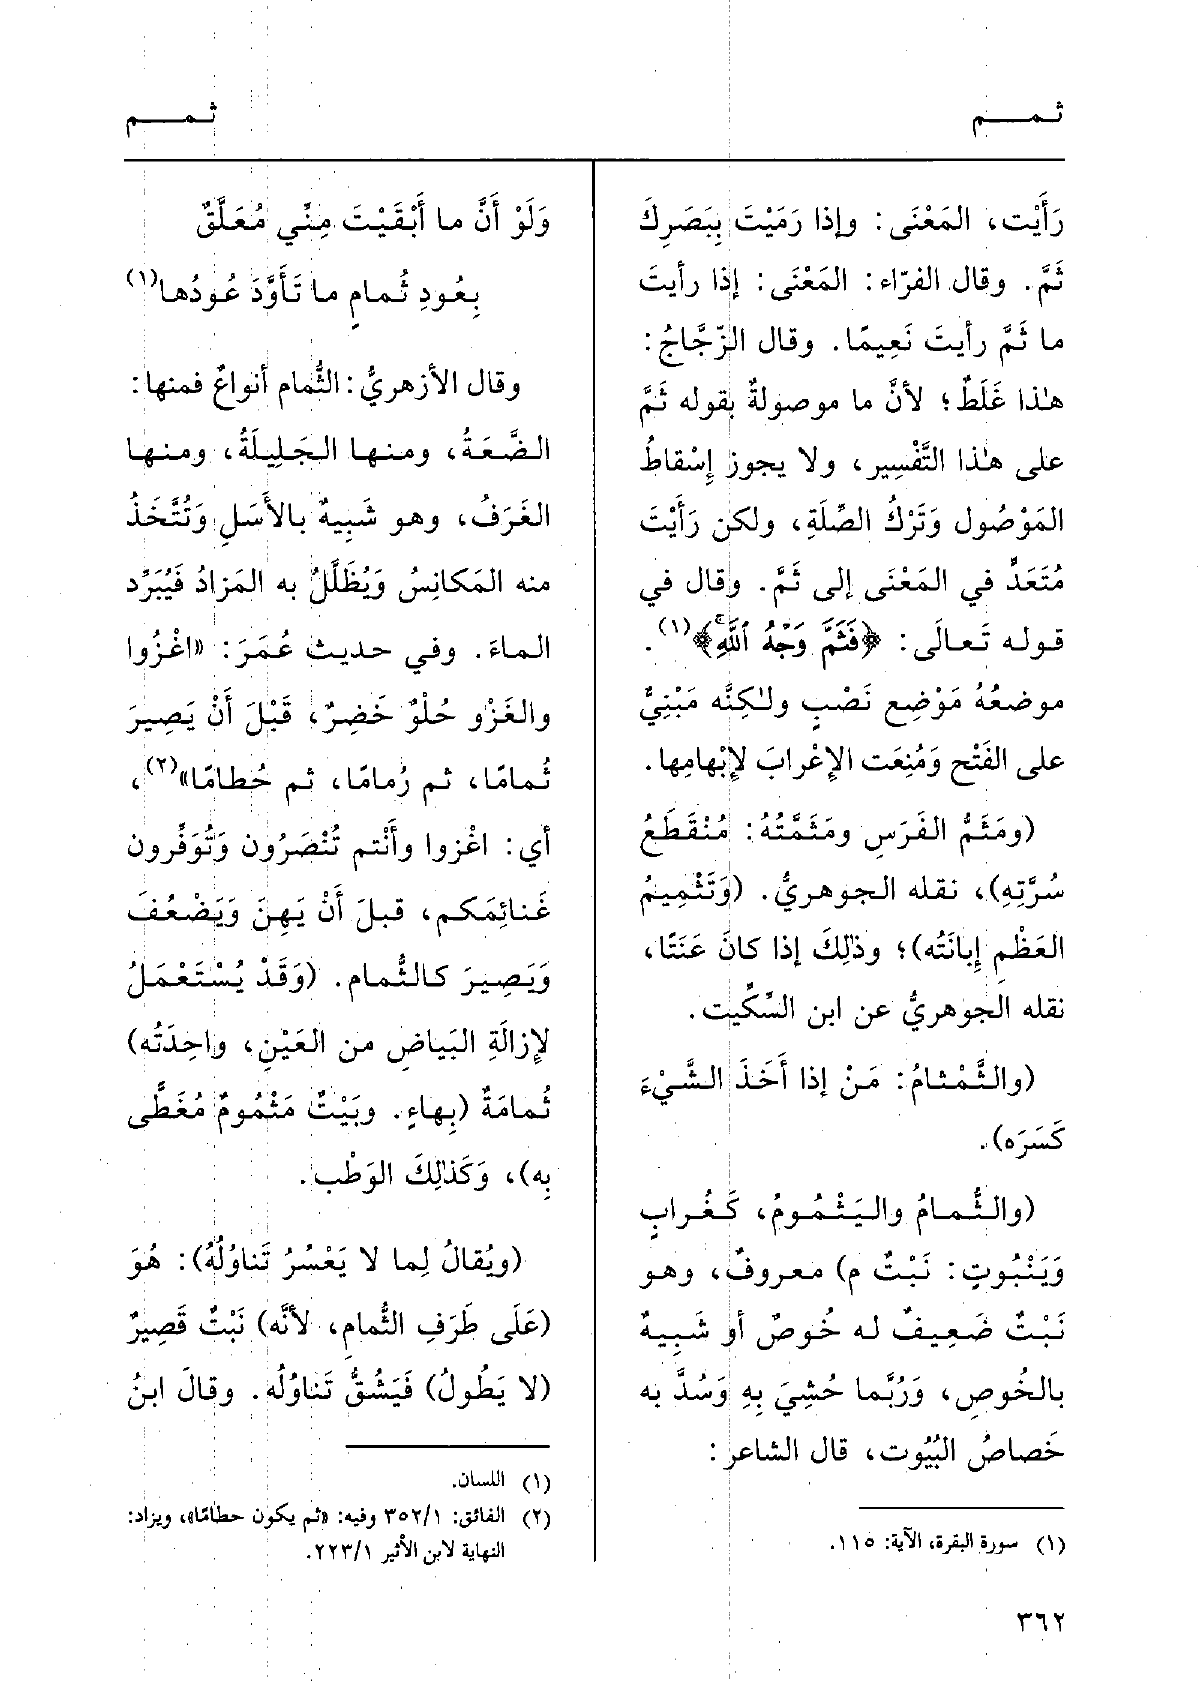 ثمم
ثمم
رَأَيْت، المَعْنَى: وإذا رَمَيْتَ بِبَصَرِكَ
ثَمَّ. وقال الفرّاء: المَعْنَى: إذا رأيتَ
ما ثَمَّ رأيتَ نَعِيمًا. وقال الزّجَّاجُ:
هٰذا غَلَطٌ؛ لأنَّ ما موصولةٌ بقوله ثَمَّ
على هٰذا التَّفْسِير، ولا يجوز إِسْقاطُ
المَوْصُول وَتَرْكُ الصِّلَةِ، ولكن رَأَيْتَ
مُتَعَدٍّ في المَعْنَى إلى ثَمَّ. وقال في
قوله تَعالَى: ﴿فَثَمَّ وَجْهُ ٱللَّهِۚ﴾(١).
موضعُهُ مَوْضِع نَصْبٍ ولٰكِنَّه مَبْنِيٌّ
على الفَتْح وَمُنِعَت الإعْرابَ لإبْهامِها.
(ومَثَمُّ الفَرَسِ ومَثَمَّتُهُ: مُنْقَطَعُ
سُرَّتِهِ)، نقله الجوهريُّ. (وَتَثْمِيمُ
العَظْمِ إِبانَتُه)؛ وذٰلِكَ إذا كانَ عَنَتًا،
نقله الجوهريُّ عن ابن السِّكِّيت.
(والثَّمْثامُ: مَنْ إذا أَخَذَ الشَّيْءَ
كَسَرَه).
(والثُّمامُ واليَثْمُومُ، كَغُرابٍ
وَيَنْبُوتٍ: نَبْتٌ م) معروفٌ، وهو
نَبْتٌ ضَعِيفٌ له خُوصٌ أو شَبِيهٌ
بالخُوصِ، وَرُبَّما حُشِيَ بِهِ وَسُدَّ به
خَصاصُ البُيُوت، قال الشاعر:
(١) سورة البقرة، الآية: ١١٥.
وَلَوْ أَنَّ ما أَبْقَيْتَ مِنِّي مُعَلَّقٌ
بِعُودِ ثُمامٍ ما تَأَوَّدَ عُودُها(١)
وقال الأزهريُّ: الثُّمام أنواعٌ فمنها:
الضَّعَةُ، ومنها الجَلِيلَةُ، ومنها
الغَرَفُ، وهو شَبِيهٌ بالأَسَلِ وَتُتَّخَذُ
منه المَكانِسُ وَيُظَلَّلُ به المَزادُ فَيُبَرِّد
الماءَ. وفي حديث عُمَرَ: «اغْزُوا
والغَزْو حُلْوٌ خَضِرٌ، قَبْلَ أَنْ يَصِيرَ
ثُمامًا، ثم رُمامًا، ثم حُطامًا»(٢)،
أي: اغْزوا وأَنْتم تُنْصَرُون وَتُوَفِّرون
غَنائِمَكم، قبلَ أَنْ يَهِنَ وَيَضْعُفَ
وَيَصِيرَ كالثُّمام. (وَقَدْ يُسْتَعْمَلُ
لإزالَةِ البَياضِ من العَيْنِ، واحِدَتُه)
ثُمامَةٌ (بِهاءٍ. وبَيْتٌ مَثْمُومٌ مُغَطًّى
بِه)، وَكَذٰلِكَ الوَطْب.
(ويُقالُ لِما لا يَعْسُرُ تَناوُلُهُ): هُوَ
(عَلَى طَرَفِ الثُّمامِ، لأنَّه) نَبْتٌ قَصِيرٌ
(لا يَطُولُ) فَيَشُقُّ تَناوُلُه. وقالَ ابنُ
(١) اللسان.
(٢) الفائق: ٣٥٢/١ وفيه: «ثم يكون حطامًا»، ويزاد:
النهاية لابن الأثير ٢٢٣/١.
٣٦٢